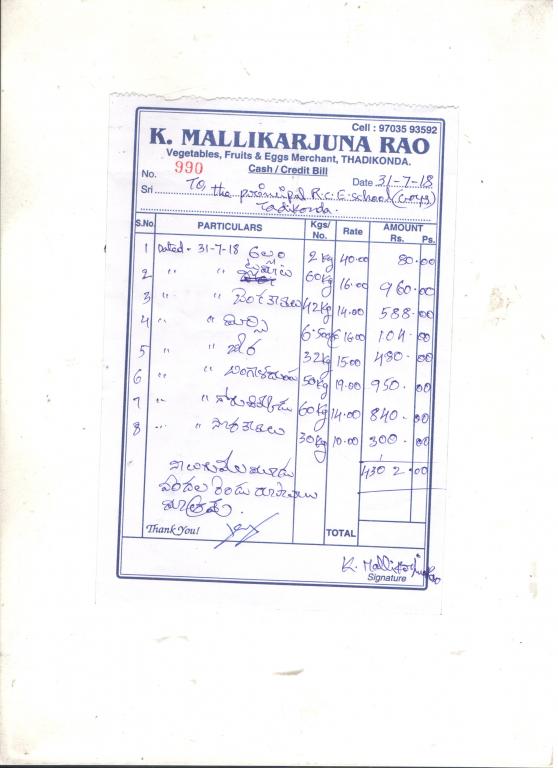 Cell : 97035 93592
K. MALLIKARJUNA RAO
Vegetables, Fruits & Eggs Merchant, THADIKONDA.
No. 990 Cash / Credit Bill Date 31-7-18
Sri To, the principal R.C.E. school (Boys)
Tadikonda.
S.No. PARTICULARS Kgs/No. Rate AMOUNT Rs. Ps.
1 Dated - 31-7-18 అల్లం 2 kg 40.00 80.00
2 " " 60kg 16.00 960.00
3 " " వంకాయలు 42kg 14.00 588.00
4 " " మిర్చి 6.500 16.00 104.00
5 " " బీర 32kg 15.00 480.00
6 " " బంగాళదుంప 50kg 19.00 950.00
7 " " 60kg 14.00 840.00
8 " " 30kg 10.00 300.00
4302.00
నాలుగువేల మూడు
వందల రెండు రూపాయలు
మాత్రమే.
Thank You!
TOTAL
K. Mallikarjuna Rao
Signature